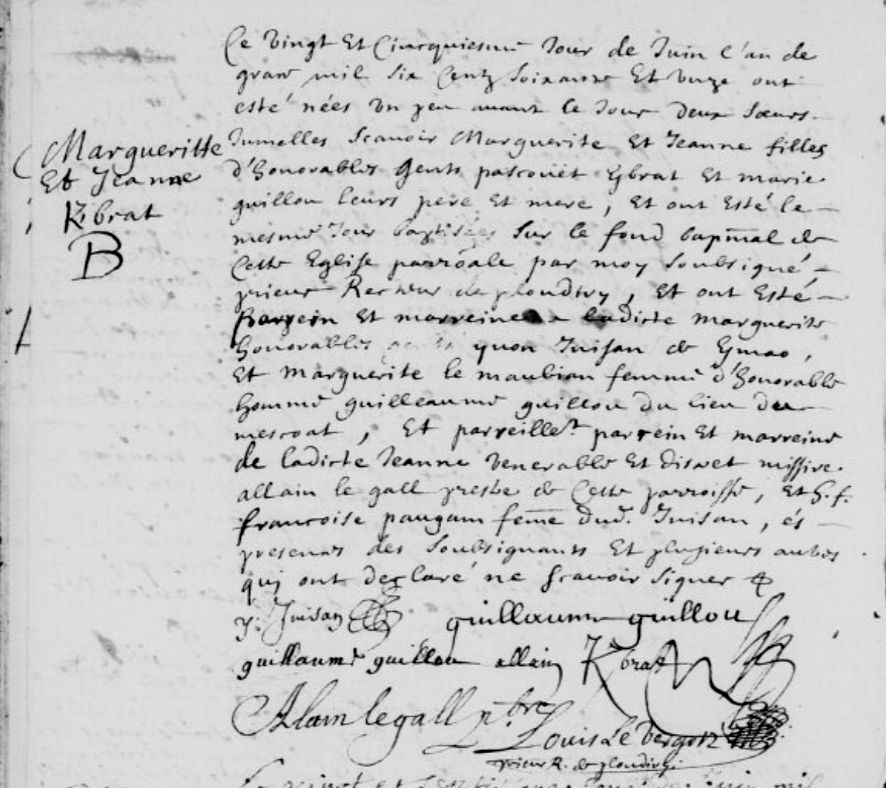 Margueritte
Et Jeanne
K̵brat
B
Ce vingt Et Cincquiesme Jour de Juin l'an de
grace mil six Centz soixante Et unze ont
esté nées un peu auant le Jour deux sœurs
Jumelles scauoir Marguerite Et Jeanne filles
d'honorables gents pascouet K̵brat Et marie
guillou leurs pere Et mere, Et ont Esté le
mesme Jour baptisées sur le fond bapmal de
Cette Eglise parroale par moy soubsigné
prieur Recteur de ploudiry, Et ont Esté
parrein Et marreine a ladicte marguerite
honorables gents yuon Inisan de K̵mao,
Et marguerite le maubian femme d'honorable
homme guilleaume guillou du lieu du
mescoat, Et pareillet parrein Et marreine
de ladicte Jeanne venerable Et discret missire
allain le gall prestre de Cette parroisse, Et h. f.
francoise paugam feme dud. Inisan, és
presences des soubsignants Et plusieurs autres
quj ont declaré ne scauoir signer
y. Inisan guillaume guillou
guillaume guillou allain K̵brat
Alain le gall pbre
Louis Le bergotz
prieur R. de ploudiry